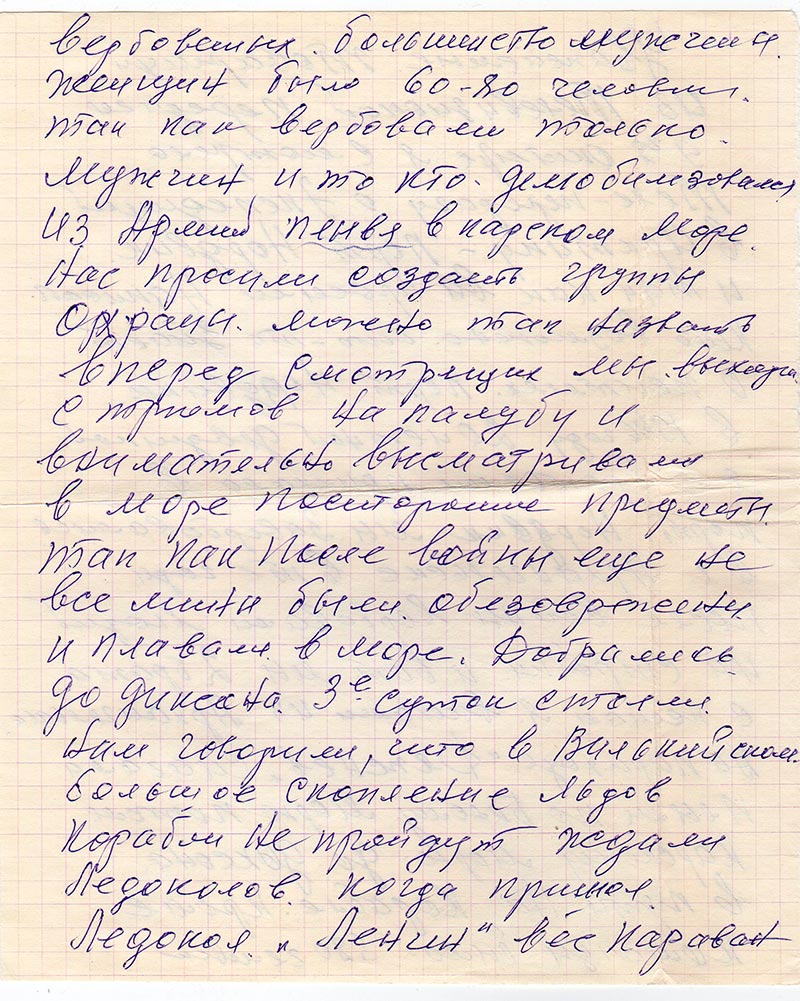 вербованых. большинство мужчин.
женщин было 60-80 человек.
так как вербовали только.
мужчин и то кто. демобилизовался
из Армий пенвя в карском море.
нас просили создать группы
Охраны. можно так назвать
вперед смотрящих мы. выходили
с трюмов на палубу и
внимательно высматривали
в море посторонние предметы.
так как после войны еще не
все мины были. обезоврежены.
и плавали. в море. Добрались.
до диксона. 3е суток стояли.
нам говорили, что в Вилькийском.
большое скопление льдов
корабли не пройдут ждали
Ледоколов. когда пришол.
Ледокол. „Ленин" вес караван